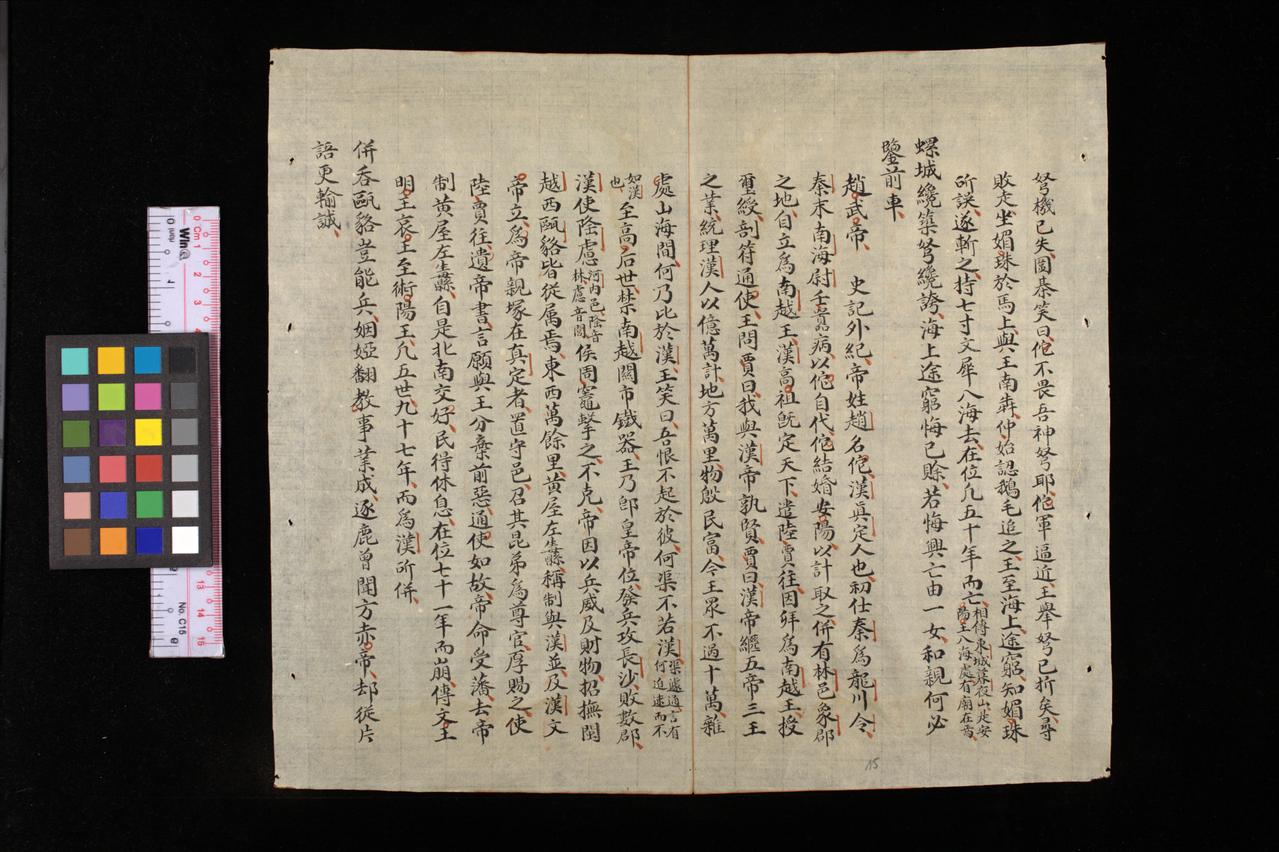 弩機已失圍棊笑曰佗不畏吾神弩耶佗軍逼近王舉弩已折矣尋
敗走坐媚珠於馬上與王南犇仲始認鵝毛追之王至海上途窮知媚珠
所誤遂斬之持七寸文犀入海去在位凡五十年而亡相傳東城暮夜山是安陽王入海處有廟在焉
螺城纔築弩纔誇海上途窮悔已賖若悔興亡由一女和親何必
鑒前車
趙武帝 史記外紀帝姓趙名佗漢眞定人也初仕秦爲龍川令
秦末南海尉壬囂病以佗自代佗結婚安陽以計取之併有林邑象郡
之地自立爲南越王漢高祖旣定天下遣陸賈往因拜爲南越王授
璽綬剖符通使王問賈曰我與漢帝孰賢賈曰漢帝繼五帝三王
之業統理漢人以億萬計地方萬里物殷民富今王眾不過十萬雜
處山海間何乃比於漢王笑曰吾恨不起於彼何渠不若漢渠遽通言有何迫速而不
如漢也至高后世禁南越關市鐵器王乃卽皇帝位發兵攻長沙敗數郡
漢使隆慮河內邑隆音林慮音閭侯周竈擊之不克帝因以兵威及財物招撫閩
越西甌貉皆從属焉東西萬餘里黄屋左纛稱制與漢並及漢文
帝立爲帝親塚在真定者置守邑召其昆弟爲尊官厚賜之使
陸賈往遺帝書言願與王分棄前惡通使如故帝命受藩去帝
制黄屋左纛自是北南交好民得休息在位七十一年而崩傳文王
明王哀王至術陽王凡五世九十七年而爲漢所併
併吞甌貉豈能兵姻婭翻教事業成逐鹿曾聞方赤帝却從片
語更輸誠
15